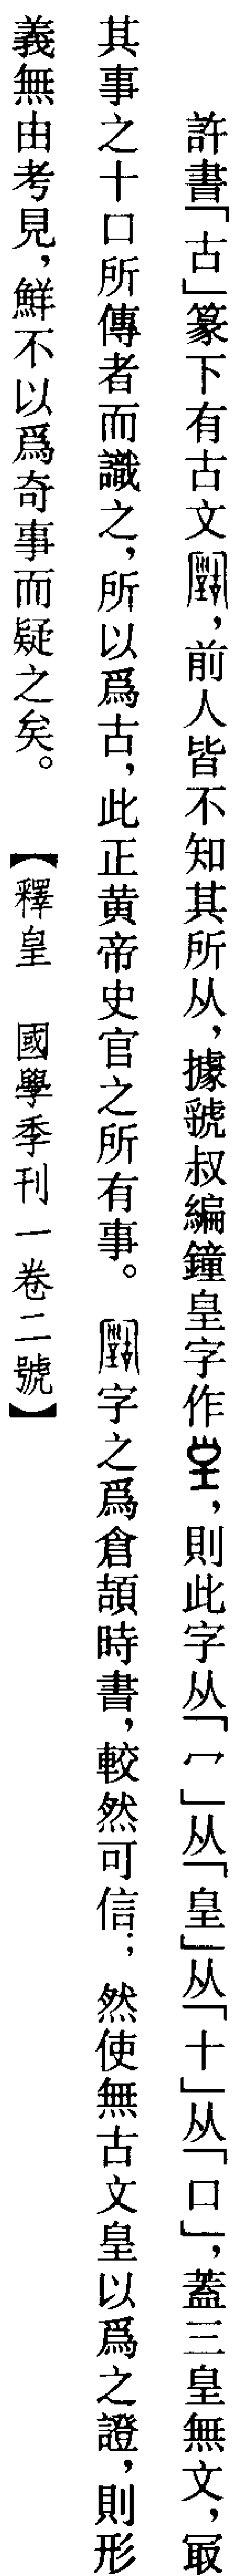 許書「古」篆下有古文，前人皆不知其所从，據虢叔編鐘皇字作，則此字从「冖」从「皇」从「十」从「口」，蓋三皇無文，冣
其事之十口所傳者而識之，所以爲古，此正黃帝史官之所有事。字之爲倉頡時書，較然可信；然使無古文皇以爲之證，則形
義無由考見，鮮不以爲奇事而疑之矣。【釋皇　國學季刊一卷二號】